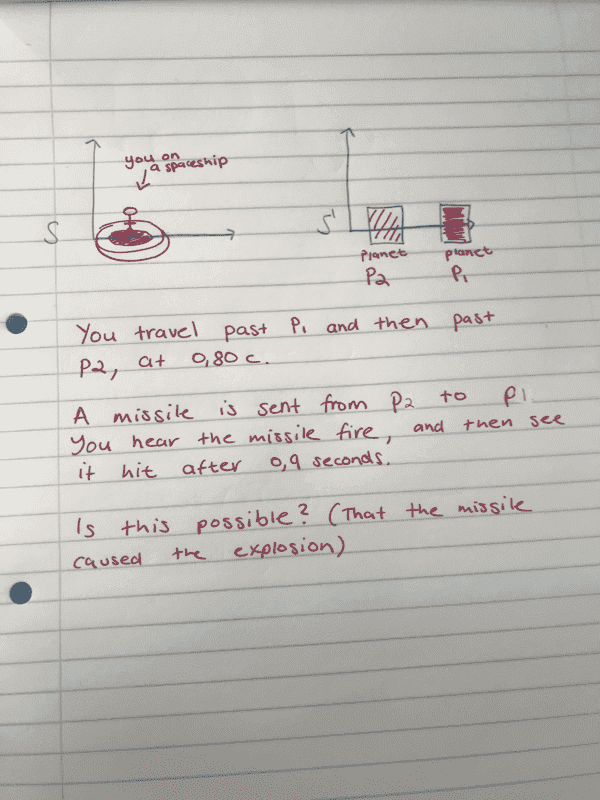 you on
a spaceship
S
S'
Planet
P2
planet
P1
You travel past P1 and then past
P2, at 0,80 c.
A missile is sent from P2 to P1
You hear the missile fire, and then see
it hit after 0,9 seconds.
Is this possible? (That the missile
caused the explosion)